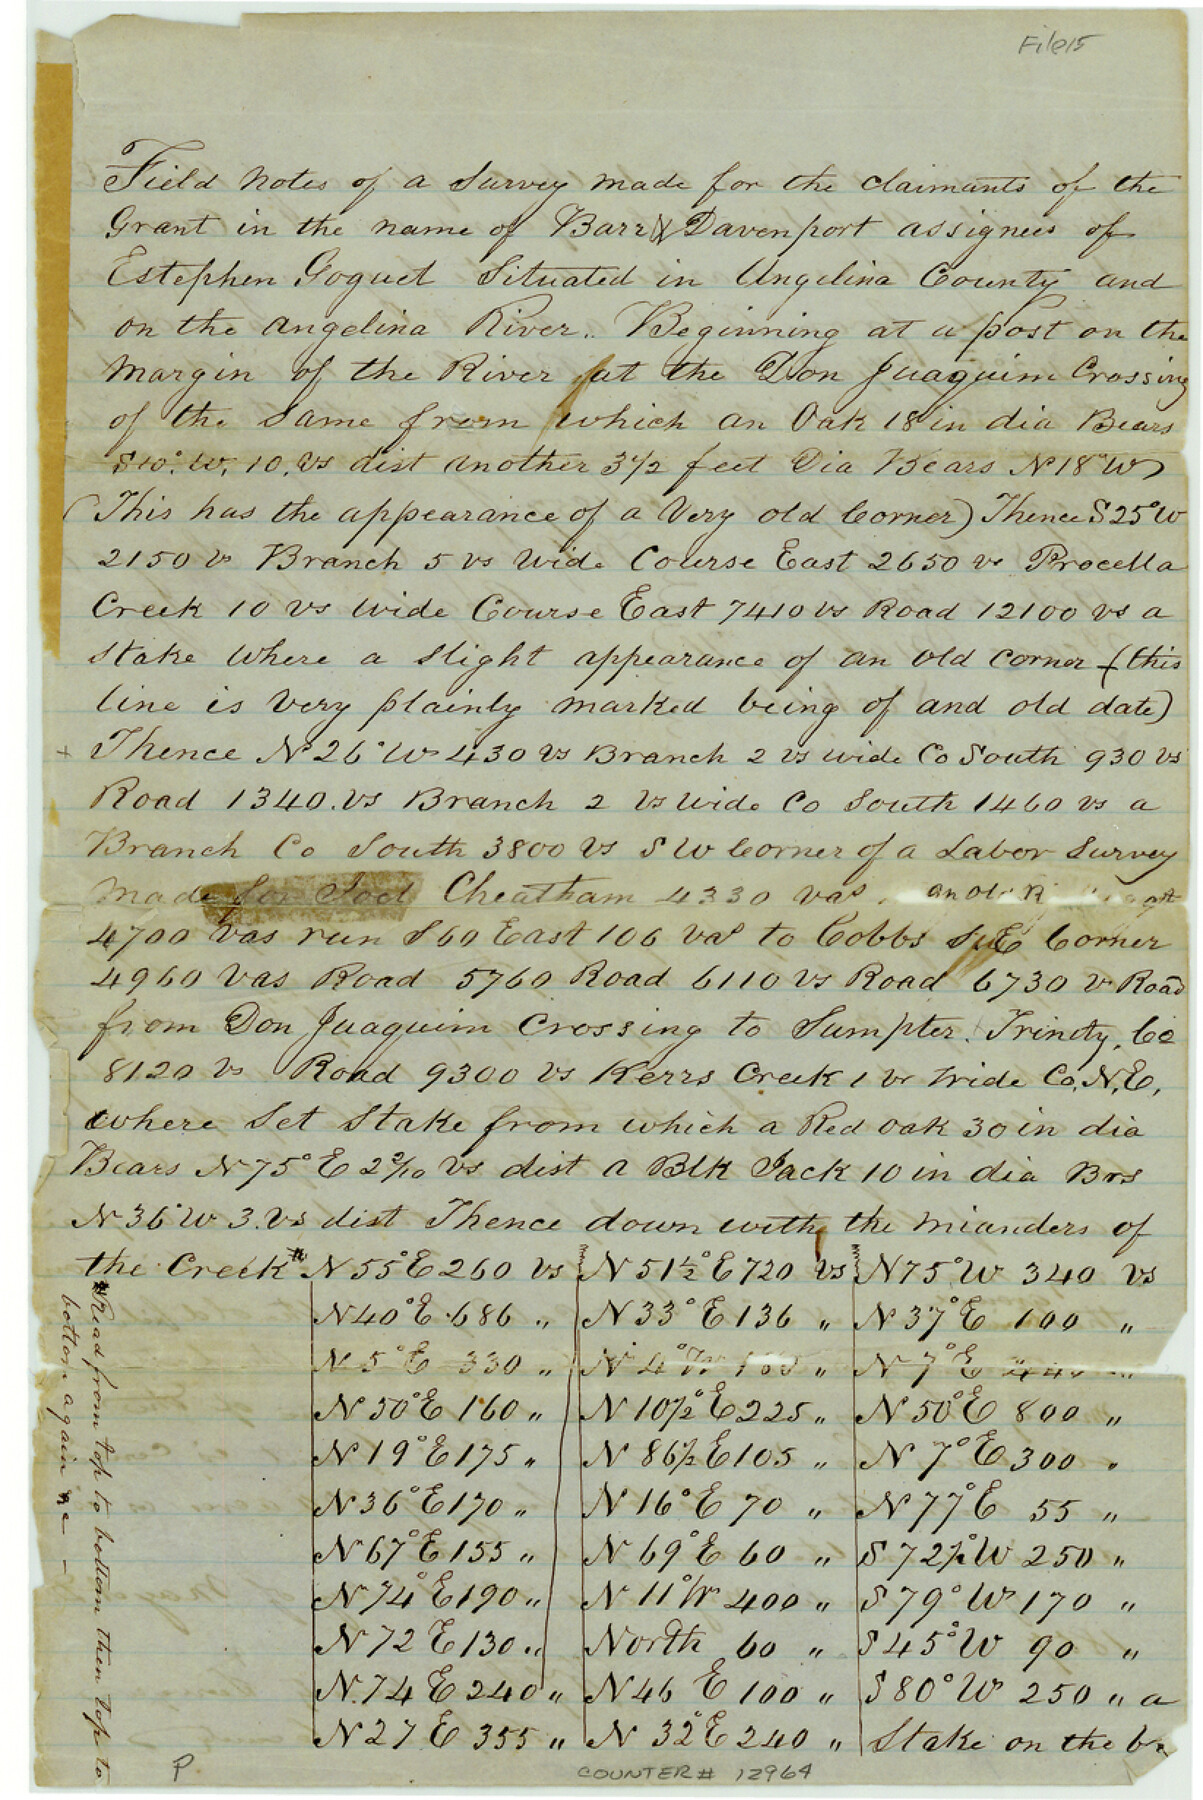 File 15
Field Notes of a Survey made for the claimants of the
Grant in the name of Barr & Davenport assignees of
Estephen Goguet Situated in Angelina County and
on the Angelina River.. Beginning at a post on the
Margin of the River at the Don Juaquim Crossing
of the Same from which an Oak 18 in dia Bears
S40°. W. 10. vs dist another 3½ feet Dia Bears N18°W
(This has the appearance of a Very old Corner) Thence S25°W
2150 vs Branch 5 vs wide Course East 2650 vs Procella
Creek 10 vs wide Course East 7410 vs Road 12100 vs a
Stake Where a slight appearance of an old corner (this
line is Very plainly marked being of and old date)
+ Thence N26°W 430 vs Branch 2 vs wide Co South 930 vs
Road 1340. vs Branch 2 vs wide Co South 1460 vs a
Branch Co South 3800 vs SW Corner of a Labor Survey
Made for Joel Cheatham 4330 vas. an old
4700 vas run S60 East 106 vas to Cobbs S.E Corner
4960 vas Road 5760 Road 6110 vs Road 6730 v Road
from Don Juaquim Crossing to Sumpter. Trinity. Co
8120 vs Road 9300 vs Kerrs Creek 1 vr Wide Co. N.E,
where Set Stake from which a Red oak 30 in dia
Bears N75°E 2 /10 vs dist a Blk Jack 10 in dia Brs
N36°W 3. vs dist Thence down with the mianders of
the Creek # N55°E 260 vs N51½°E 720 vs N75°W 340 vs
N40°E 686 " N33°E 136 " N37°E 100 "
N5°E 330 " N4°W " N7°E "
N50°E 160 " N10½°E 225 " N50°E 800 "
N19°E 175 " N86½E 105 " N7°E 300 "
N36°E 170 " N16°E 70 " N77°E 55 "
N67°E 155 " N69°E 60 " S72½°W 250 "
N74°E 190 " N11°W 400 " S79°W 170 "
N72E 130 " North 60 " S45°W 90 "
N.74E 240 " N46E 100 " S80°W 250 " a
N27E 355 " N32°E 240 " Stake on the
# read from top to bottom then top to
bottom again &c —
P
COUNTER # 12964